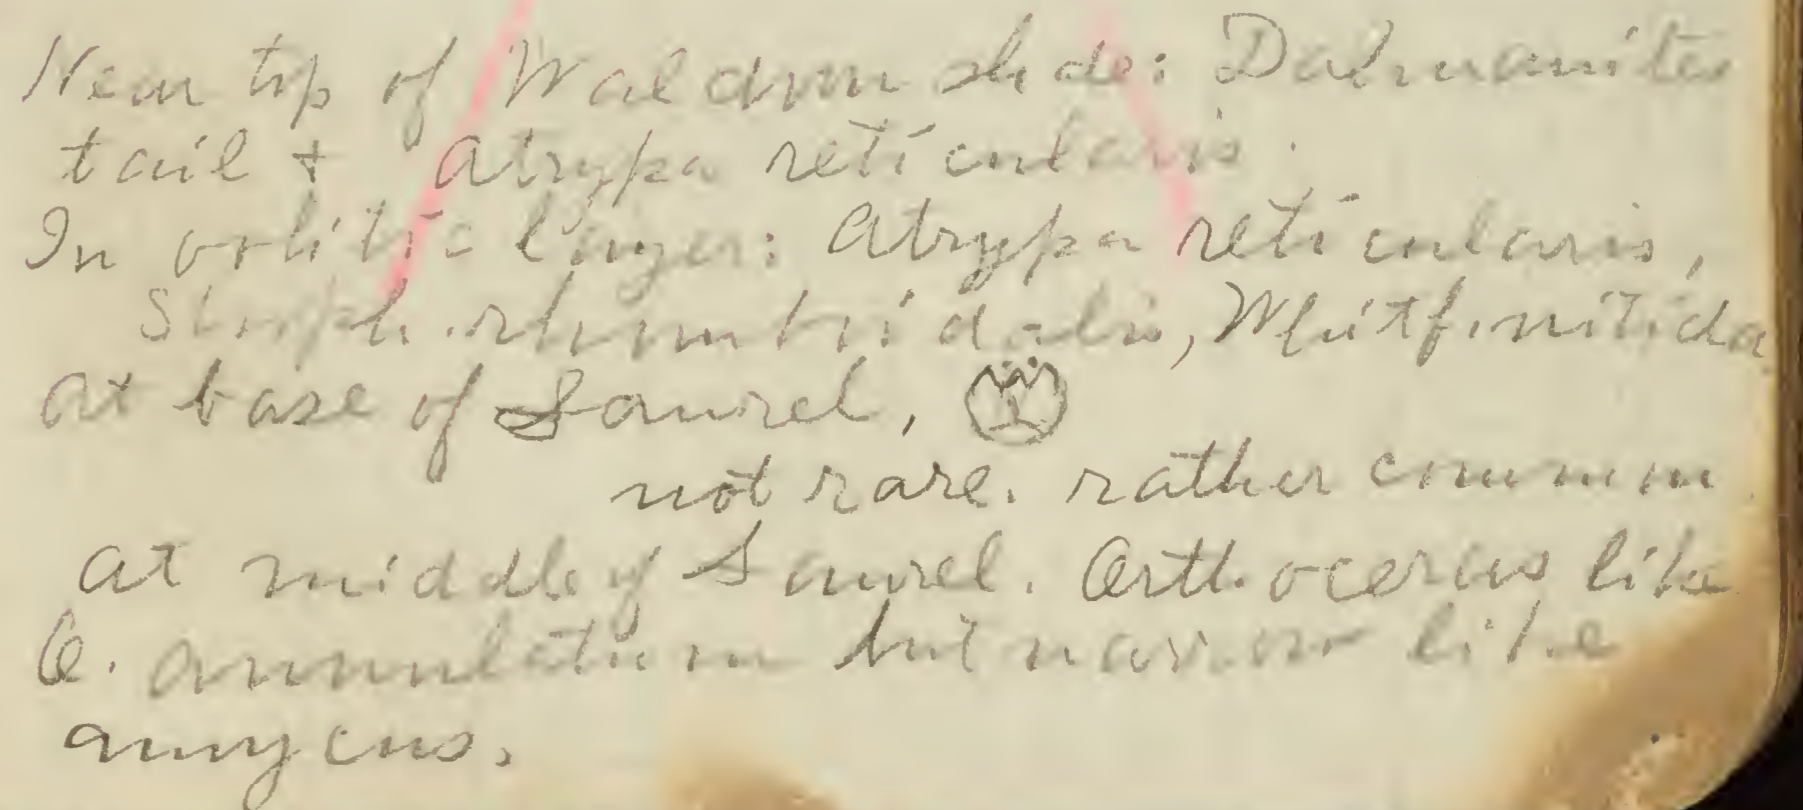 Near top of Waldron shale: Dalmanites
tail + Atrypa reticularis.
In oolitic layer: Atrypa reticularis,
Stroph. rhomboidalis, Whitf. nitida
At base of Laurel,
not rare. rather common
At middle of Laurel. Orthoceras like
O. annulatum but narrow like
amycus.